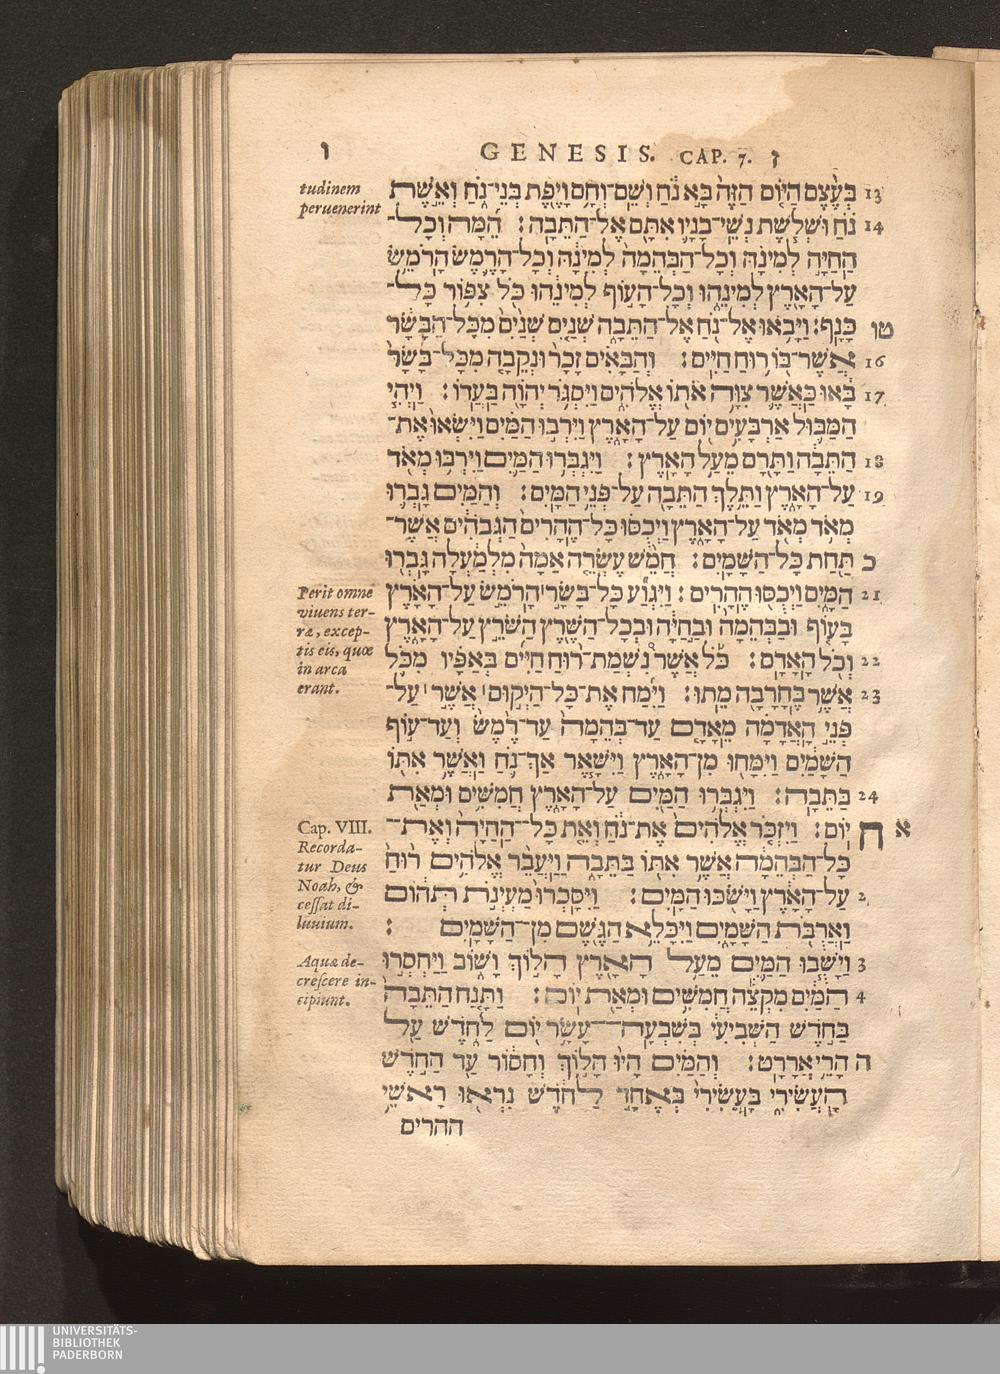 ו GENESIS. CAP. 7. ז
tudinem
peruenerint
בְּעֶצֶם הַיּוֹם הַזֶּה בָּא נֹחַ וְשֵׁם־וְחָם וָיֶפֶת בְּנֵי־נֹחַ וְאֵשֶׁת 13
נֹחַ וּשְׁלֹשֶׁת נְשֵׁי־בָנָיו אִתָּם אֶל־הַתֵּבָה׃ הֵמָּה וְכָל־ 14
הַחַיָּה לְמִינָהּ וְכָל־הַבְּהֵמָה לְמִינָהּ וְכָל־הָרֶמֶשׂ הָרֹמֵשׂ
עַל־הָאָרֶץ לְמִינֵהוּ וְכָל־הָעוֹף לְמִינֵהוּ כֹּל צִפּוֹר כָּל־
כָּנָף׃ וַיָּבֹאוּ אֶל־נֹחַ אֶל־הַתֵּבָה שְׁנַיִם שְׁנַיִם מִכָּל־הַבָּשָׂר טו
אֲשֶׁר־בּוֹ רוּחַ חַיִּים׃ וְהַבָּאִים זָכָר וּנְקֵבָה מִכָּל־בָּשָׂר 16
בָּאוּ כַּאֲשֶׁר צִוָּה אֹתוֹ אֱלֹהִים וַיִּסְגֹּר יְהוָֹה בַּעֲדוֹ׃ וַיְהִי 17
הַמַּבּוּל אַרְבָּעִים יוֹם עַל־הָאָרֶץ וַיִּרְבּוּ הַמַּיִם וַיִּשְׂאוּ אֶת־
הַתֵּבָה וַתָּרָם מֵעַל הָאָרֶץ׃ וַיִּגְבְּרוּ הַמַּיִם וַיִּרְבּוּ מְאֹד 18
עַל־הָאָרֶץ וַתֵּלֶךְ הַתֵּבָה עַל־פְּנֵי הַמָּיִם׃ וְהַמַּיִם גָּבְרוּ 19
מְאֹד מְאֹד עַל־הָאָרֶץ וַיְכֻסּוּ כָּל־הֶהָרִים הַגְּבֹהִים אֲשֶׁר־
תַּחַת כָּל־הַשָּׁמָיִם׃ חֲמֵשׁ עֶשְׂרֵה אַמָּה מִלְמַעְלָה גָּבְרוּ כ
הַמָּיִם וַיְכֻסּוּ הֶהָרִים׃ וַיִּגְוַע כָּל־בָּשָׂר הָרֹמֵשׂ עַל־הָאָרֶץ 21
בָּעוֹף וּבַבְּהֵמָה וּבַחַיָּה וּבְכָל־הַשֶּׁרֶץ הַשֹּׁרֵץ עַל־הָאָרֶץ
וְכֹל הָאָדָם׃ כֹּל אֲשֶׁר נִשְׁמַת־רוּחַ חַיִּים בְּאַפָּיו מִכֹּל 22
אֲשֶׁר בֶּחָרָבָה מֵתוּ׃ וַיִּמַח אֶת־כָּל־הַיְקוּם אֲשֶׁר עַל־ 23
פְּנֵי הָאֲדָמָה מֵאָדָם עַד־בְּהֵמָה עַד־רֶמֶשׂ וְעַד־עוֹף
הַשָּׁמַיִם וַיִּמָּחוּ מִן־הָאָרֶץ וַיִּשָּׁאֶר אַךְ־נֹחַ וַאֲשֶׁר אִתּוֹ
בַּתֵּבָה׃ וַיִּגְבְּרוּ הַמַּיִם עַל־הָאָרֶץ חֲמִשִּׁים וּמְאַת 24
Perit omne
viuens ter-
ræ, excep-
tis eis, quæ
in arca
erant.
יוֹם׃ וַיִּזְכֹּר אֱלֹהִים אֶת־נֹחַ וְאֵת כָּל־הַחַיָּה וְאֶת־ ח א
כָּל־הַבְּהֵמָה אֲשֶׁר אִתּוֹ בַּתֵּבָה וַיַּעֲבֵר אֱלֹהִים רוּחַ
עַל־הָאָרֶץ וַיָּשֹׁכּוּ הַמָּיִם׃ וַיִּסָּכְרוּ מַעְיְנֹת תְּהוֹם 2
וַאֲרֻבֹּת הַשָּׁמָיִם וַיִּכָּלֵא הַגֶּשֶׁם מִן־הַשָּׁמָיִם׃
וַיָּשֻׁבוּ הַמַּיִם מֵעַל הָאָרֶץ הָלוֹךְ וָשׁוֹב וַיַּחְסְרוּ 3
הַמַּיִם מִקְצֵה חֲמִשִּׁים וּמְאַת יוֹם׃ וַתָּנַח הַתֵּבָה 4
בַּחֹדֶשׁ הַשְּׁבִיעִי בְּשִׁבְעָה־עָשָׂר יוֹם לַחֹדֶשׁ עַל
הָרֵי אֲרָרָט׃ וְהַמַּיִם הָיוּ הָלוֹךְ וְחָסוֹר עַד הַחֹדֶשׁ ה
הָעֲשִׂירִי בָּעֲשִׂירִי בְּאֶחָד לַחֹדֶשׁ נִרְאוּ רָאשֵׁי
ההרים
Cap. VIII.
Recorda-
tur Deus
Noah, &
cessat di-
luuium.
Aquæ de-
crescere in-
cipiunt.
UNIVERSITÄTS-
BIBLIOTHEK
PADERBORN